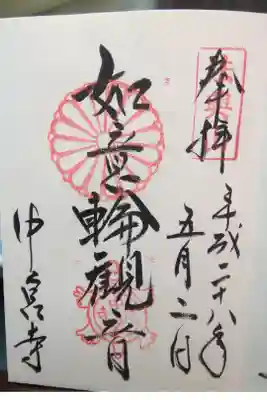 奉拝
平成二十八年
五月二日
如意輪觀音
中宮寺